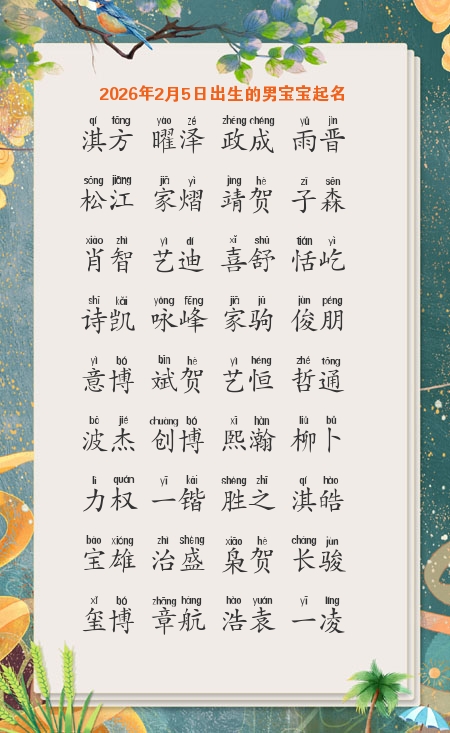 2026年2月5日出生的男宝宝起名
qí fāng yào zé zhèng chéng yǔ jìn
淇方 曜泽 政成 雨晋
sōng jiāng jiā yì jìng hè zǐ sēn
松江 家熠 靖贺 子森
xiào zhì yì dí xǐ shū tián yì
肖智 艺迪 喜舒 恬屹
shī kǎi yǒng fēng jiā jū jùn péng
诗凯 咏峰 家驹 俊朋
yì bó bīn hè yì héng zhé tōng
意博 斌贺 艺恒 哲通
bō jié chuàng bó xī hàn liǔ bǔ
波杰 创博 熙瀚 柳卜
lì quán yī kǎi shèng zhī qí hào
力权 一锴 胜之 淇皓
bǎo xióng zhì shèng xiāo hè cháng jùn
宝雄 治盛 枭贺 长骏
xǐ bó zhāng háng hào yuán yī líng
玺博 章航 浩袁 一凌